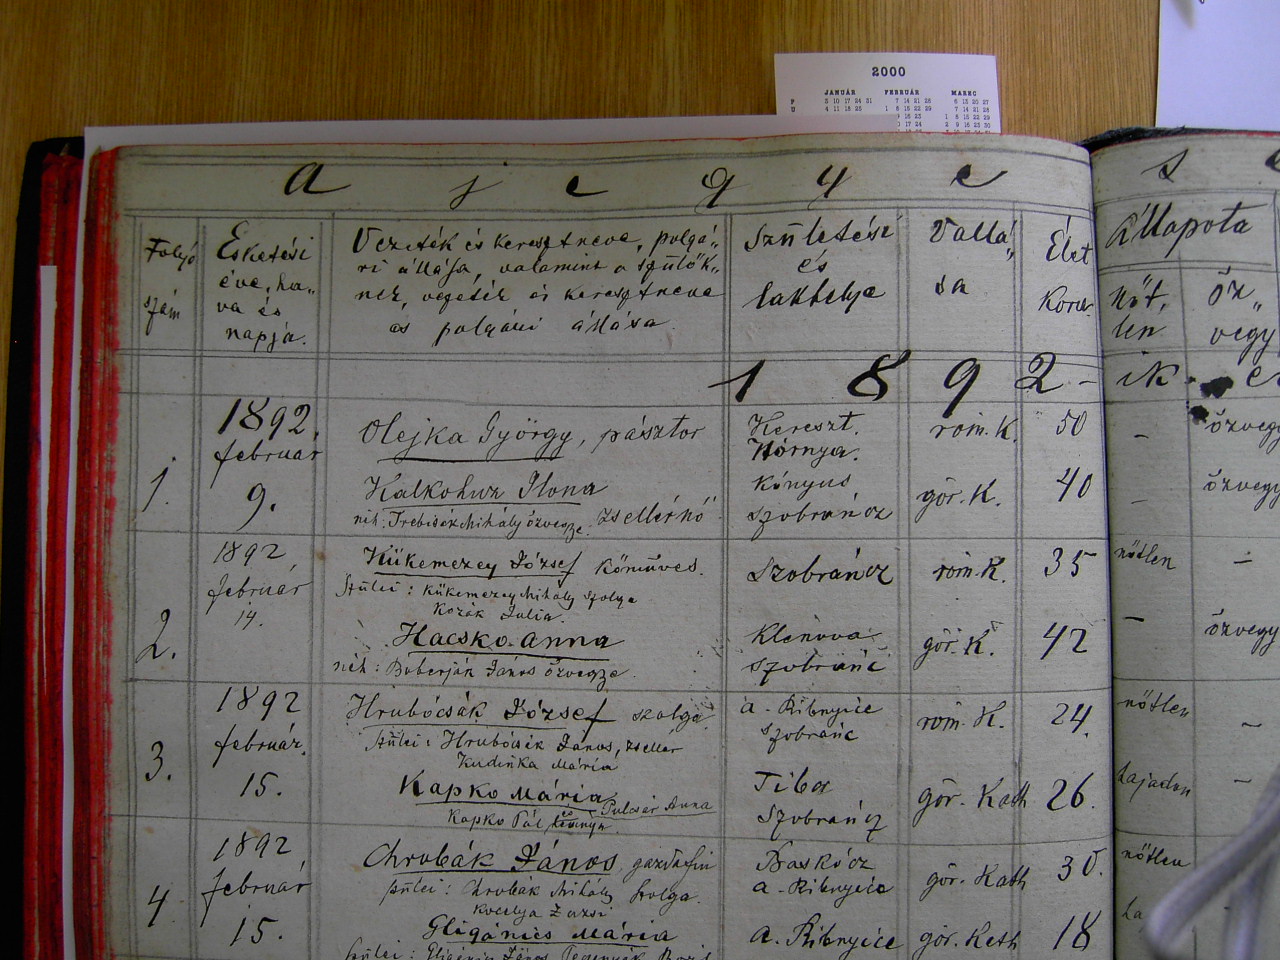 2000
JANUÁR FEBRUÁR MAREC
a j e g y e s
Folyó
szám
Esketési
éve, ha„
va és
napja.
Vezeték és keresztneve, polgá„
ri állása, valamint a szülők„
nek, vezeték és keresztneve
és polgári állása.
Születési
és
lakhelye
Vallá„
sa
Élet
kora
Állapota
nőt„
len
öz„
vegy
1892-ik
1.
1892.
február
9.
Olejka György, pásztor
Kereszt.
róm. K.
50
özvegy
Ilona
zsellérnő
Konyus
Szobráncz
gör. K.
40
özvegy
2.
1892
február
14.
Kükemezey József kőműves.
Szülei: Kükemezey Mihály szolga
Kozák Julia.
Szobráncz
róm. K.
35
nőtlen
Hacsko Anna
néh: Boberják János özvegye.
Klenova
Szobránc
gör. K.
42
özvegy
3.
1892
február.
15.
Hrubócsák József szolga
Szülei: Hrubócsák János, zsellér
Mária
a. Ribnyice
Szobránc
róm. K.
24.
nőtlen
Kapko Mária
Kapko Pál Anna
Tiba
Szobráncz
gör. Kath
26.
hajadon
4
1892
február
15.
Chrobák János, gazdafiu
szülei: Chrobák Mihály szolga.
Zuzsi
Baskócz
a. Ribnyice
gör. Kath
30.
nőtlen
Gligánics Mária
a. Ribnyice
gör. Kath
18
ha